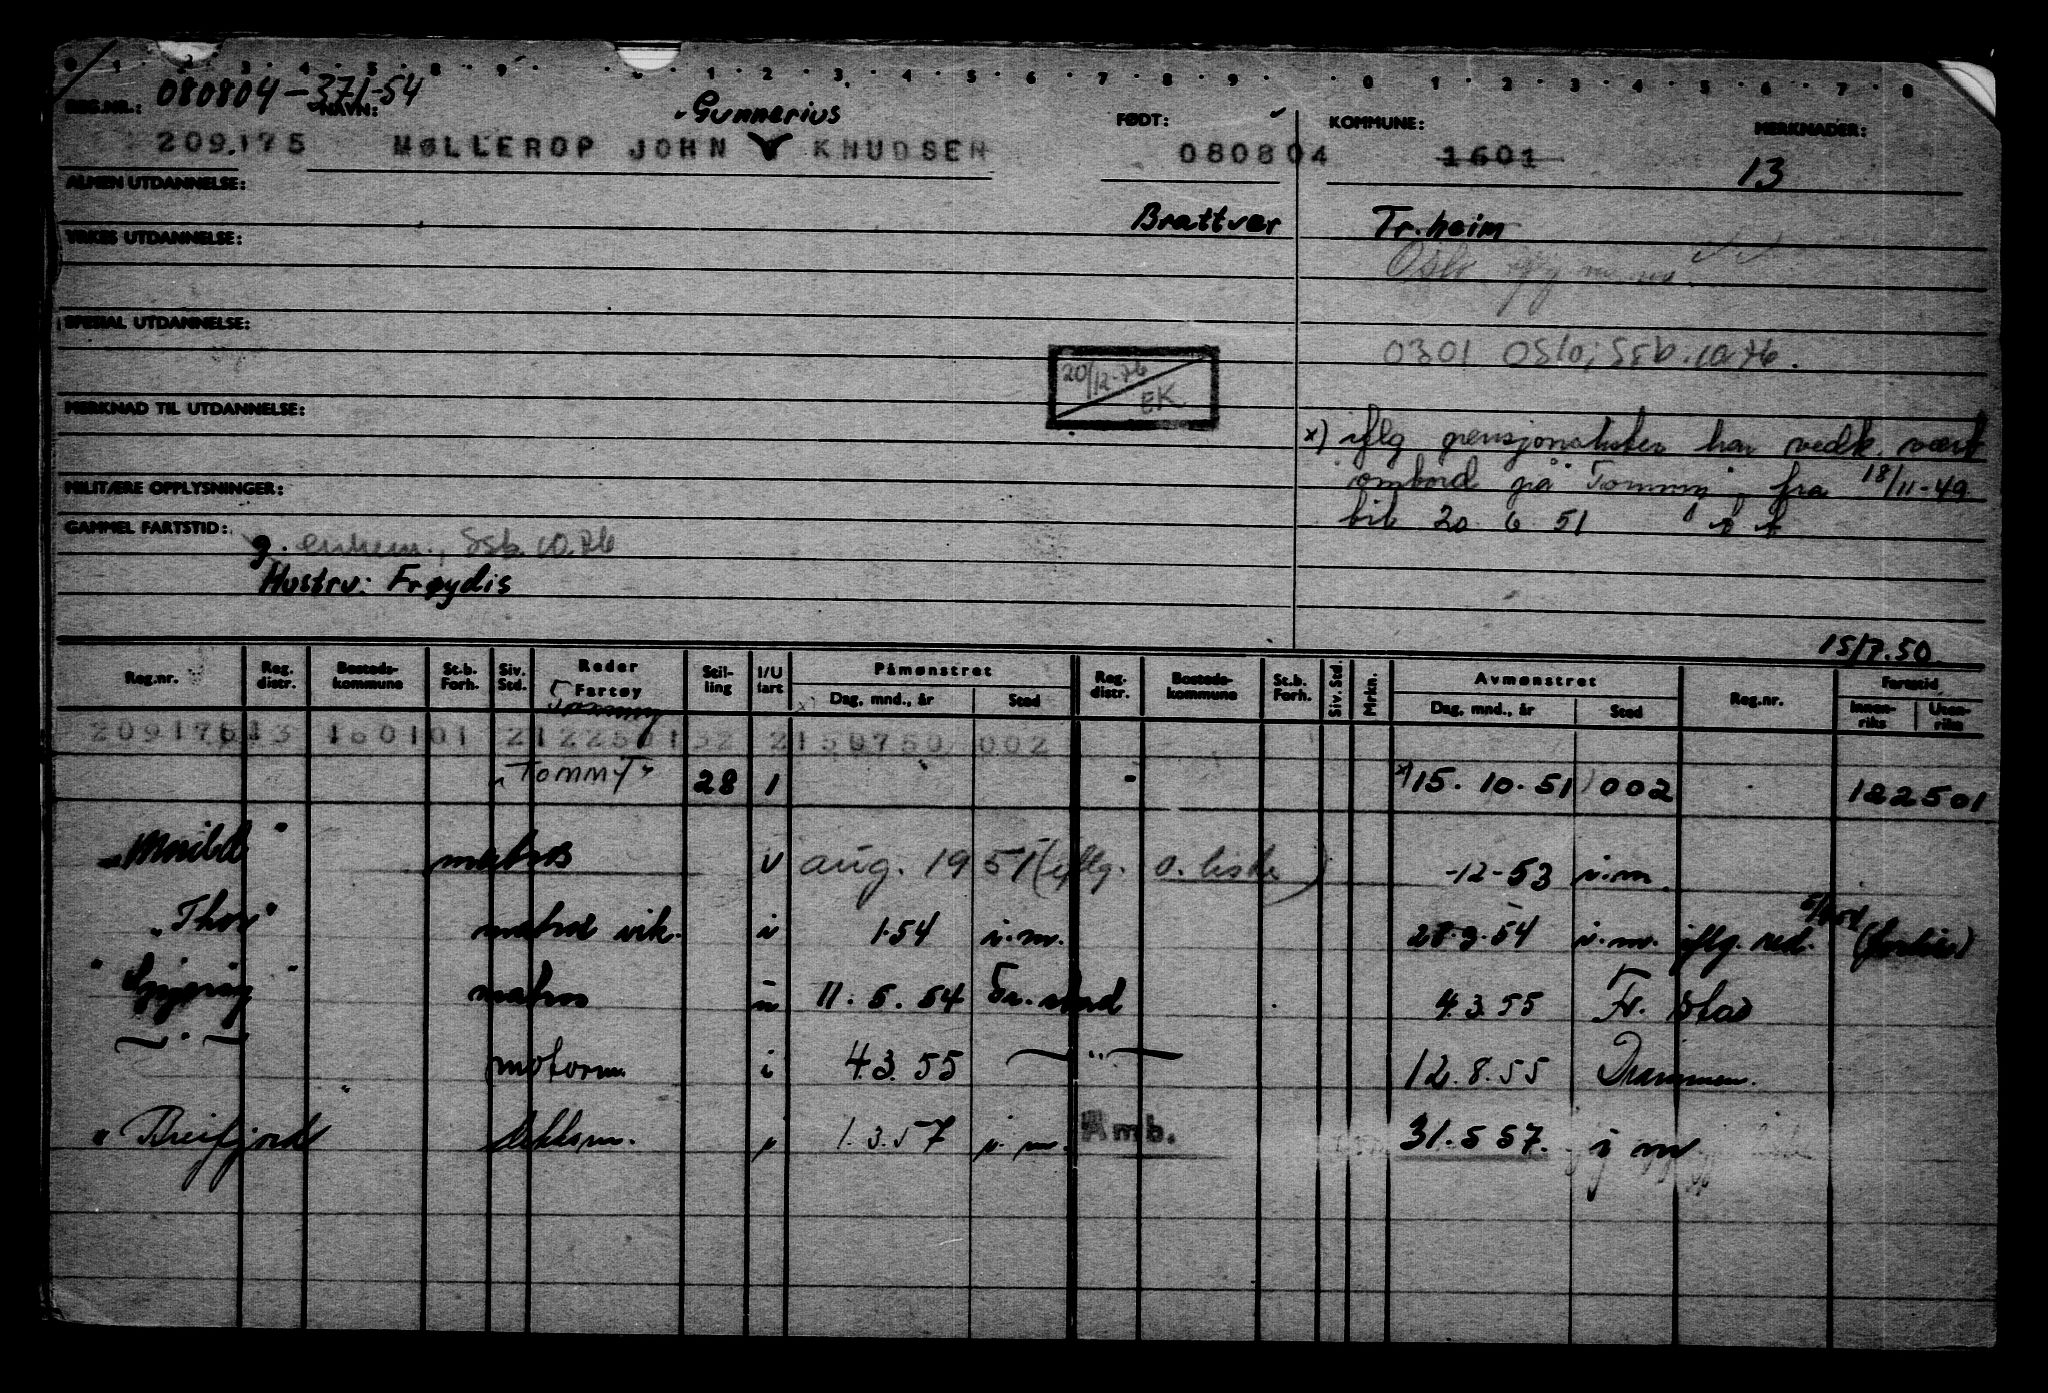 0 1 2 3 4 5 8 9 0 1 2 3 4 5 6 7 8 9 0 1 2 3 4 5 6 7 8
REG.NR.: 080804-371-54 NAVN: Gunnerius FØDT: KOMMUNE: MERKNADER:
209.175 MØLLEROP JOHN KNUDSEN 080804 1601 13
ALMEN UTDANNELSE:
Brattvær Tr.heim
YRKES UTDANNELSE:
Oslo
SPESIAL UTDANNELSE:
0301 Oslo; SSB.10.76.
20/12-76 EK
MERKNAD TIL UTDANNELSE:
x) iflg pensjonslisten har vedk. vært
ombord på "Tommy" fra 18/11-49
MILITÆRE OPPLYSNINGER:
til 20 6 51
GAMMEL FARTSTID:
g. SSB.10.76
Hustru: Frøydis
15/7.50.
Reg.nr. Reg. distr. Bosteds-kommune St.b. Forh. Siv. Std. Reder Fartøy Stil-ling I/U fart Påmønstret Dag, mnd., år Sted Reg. distr. Bosteds-kommune St.b. Forh. Siv. Std. Mrkn. Avmønstret Dag, mnd., år Sted Reg.nr. Fartstid Innen-riks Uten-riks
Tommy
209175 13 160101 2122501 32 2150750 002
"TOMMY" 28 1 - x) 15. 10. 51 002 122501
"Morild" matros u aug. 1951 (iflg. o. liste) -12-53 u.m.
"Thor" matros vik. u 1.54 u.m. 28.9.54 u.m. iflg. red.
matros u 11. 5. 54 Fr. stad 4.3.55 Fr. stad
— " — motorm. i 4.3.55 — " — 12.8.55 Drammen.
"Breifjord" dekksm. u 1.3.57 u.m. Amb. 31.5 57. i m